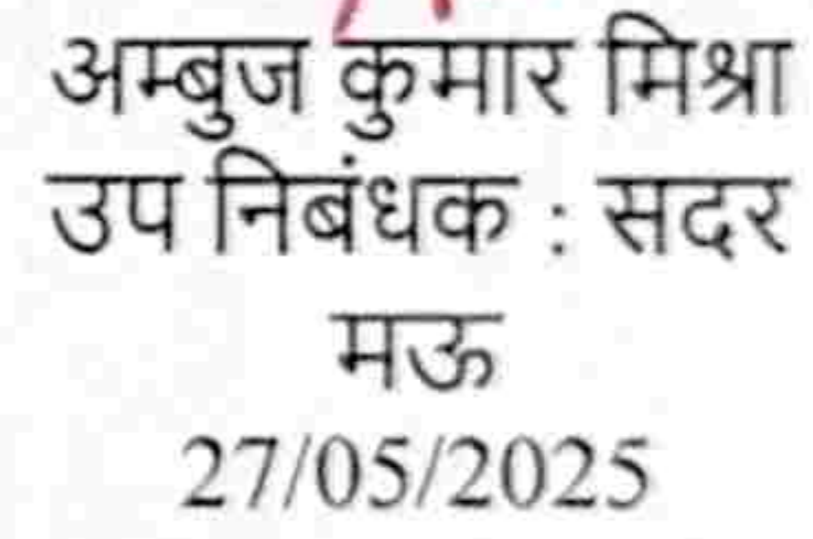 अम्बुज कुमार मिश्रा
उप निबंधक : सदर
मऊ
27/05/2025